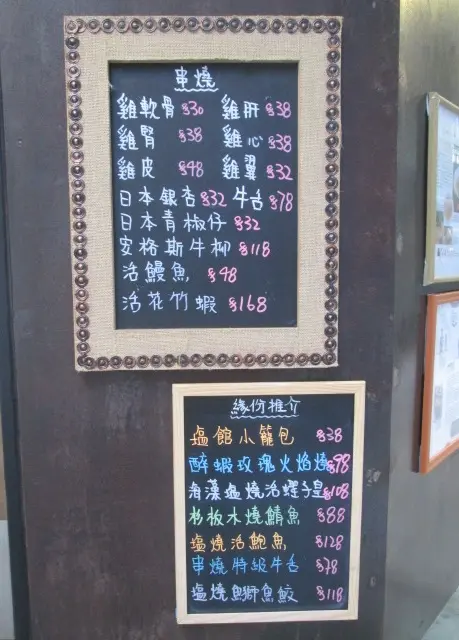 串燒
雞軟骨 $30 雞肝 $38
雞腎 $38 雞心 $38
雞皮 $48 雞翼 $32
日本銀杏 $32 牛舌 $78
日本青椒仔 $32
安格斯牛柳 $118
活鰻魚 $48
活花竹蝦 $168
緣份推介
塩館小籠包 $38
醉蝦玫瑰火焰燒 $98
海藻塩燒活蟶子皇 $108
杉板木燒鯖魚 $88
塩燒活鮑魚 $128
串燒特級牛舌 $78
塩燒鰤魚鮫 $118